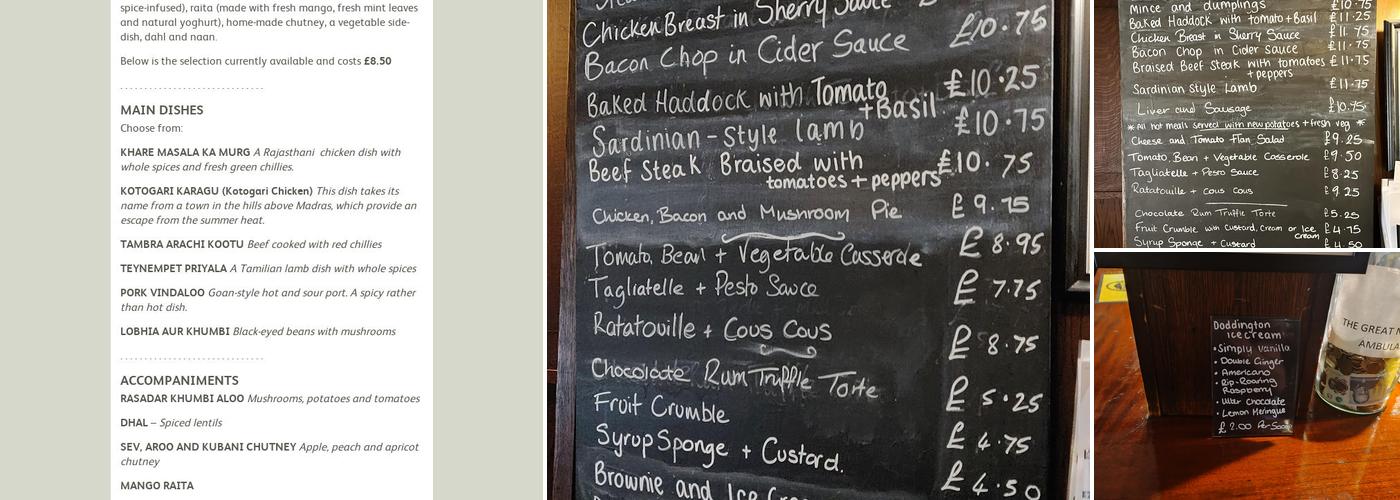 spice-infused), raita (made with fresh mango, fresh mint leaves
and natural yoghurt), home-made chutney, a vegetable side-
dish, dahl and naan.
Below is the selection currently available and costs £8.50
MAIN DISHES
Choose from:
KHARE MASALA KA MURG A Rajasthani chicken dish with
whole spices and fresh green chillies.
KOTOGARI KARAGU (Kotogari Chicken) This dish takes its
name from a town in the hills above Madras, which provide an
escape from the summer heat.
TAMBRA ARACHI KOOTU Beef cooked with red chillies
TEYNEMPET PRIYALA A Tamilian lamb dish with whole spices
PORK VINDALOO Goan-style hot and sour port. A spicy rather
than hot dish.
LOBHIA AUR KHUMBI Black-eyed beans with mushrooms
ACCOMPANIMENTS
RASADAR KHUMBI ALOO Mushrooms, potatoes and tomatoes
DHAL – Spiced lentils
SEV, AROO AND KUBANI CHUTNEY Apple, peach and apricot
chutney
MANGO RAITA
Chicken Breast in Sherry Sauce
Bacon Chop in Cider Sauce £10.75
Baked Haddock with Tomato £10.25
+Basil
Sardinian-Style lamb £10.75
Beef Steak Braised with £10.75
tomatoes + peppers
Chicken, Bacon and Mushroom Pie £9.75
Tomato, Bean + Vegetable Casserole £8.95
Tagliatelle + Pesto Sauce £7.75
Ratatouille + Cous Cous £8.75
Chocolate Rum Truffle Torte £5.25
Fruit Crumble £4.75
Syrup Sponge + Custard. £4.50
Brownie and Ice
Mince and dumplings £10.75
Baked Haddock with tomato+Basil £11.25
Chicken Breast in Sherry Sauce £11.75
Bacon Chop in Cider Sauce £11.75
Braised Beef Steak with tomatoes £11.75
+ peppers
Sardinian style Lamb £11.75
Liver and Sausage £10.75
* All hot meals served with new potatoes + fresh veg *
Cheese and Tomato Flan Salad £9.25
Tomato, Bean + Vegetable Casserole £9.50
Tagliatelle + Pesto Sauce £8.25
Ratatouille + Cous Cous £9.25
Chocolate Rum Truffle Torte £5.25
Fruit Crumble with Custard, Cream or Ice £4.75
Cream
Syrup Sponge + Custard £4.50
Doddington
icecream
• Simply Vanilla
• Double Ginger
• Americano
• Rip-Roaring
Raspberry
• Utter Chocolate
• Lemon Meringue
£2.00 Per Scoop
THE GREAT N
AMBULA